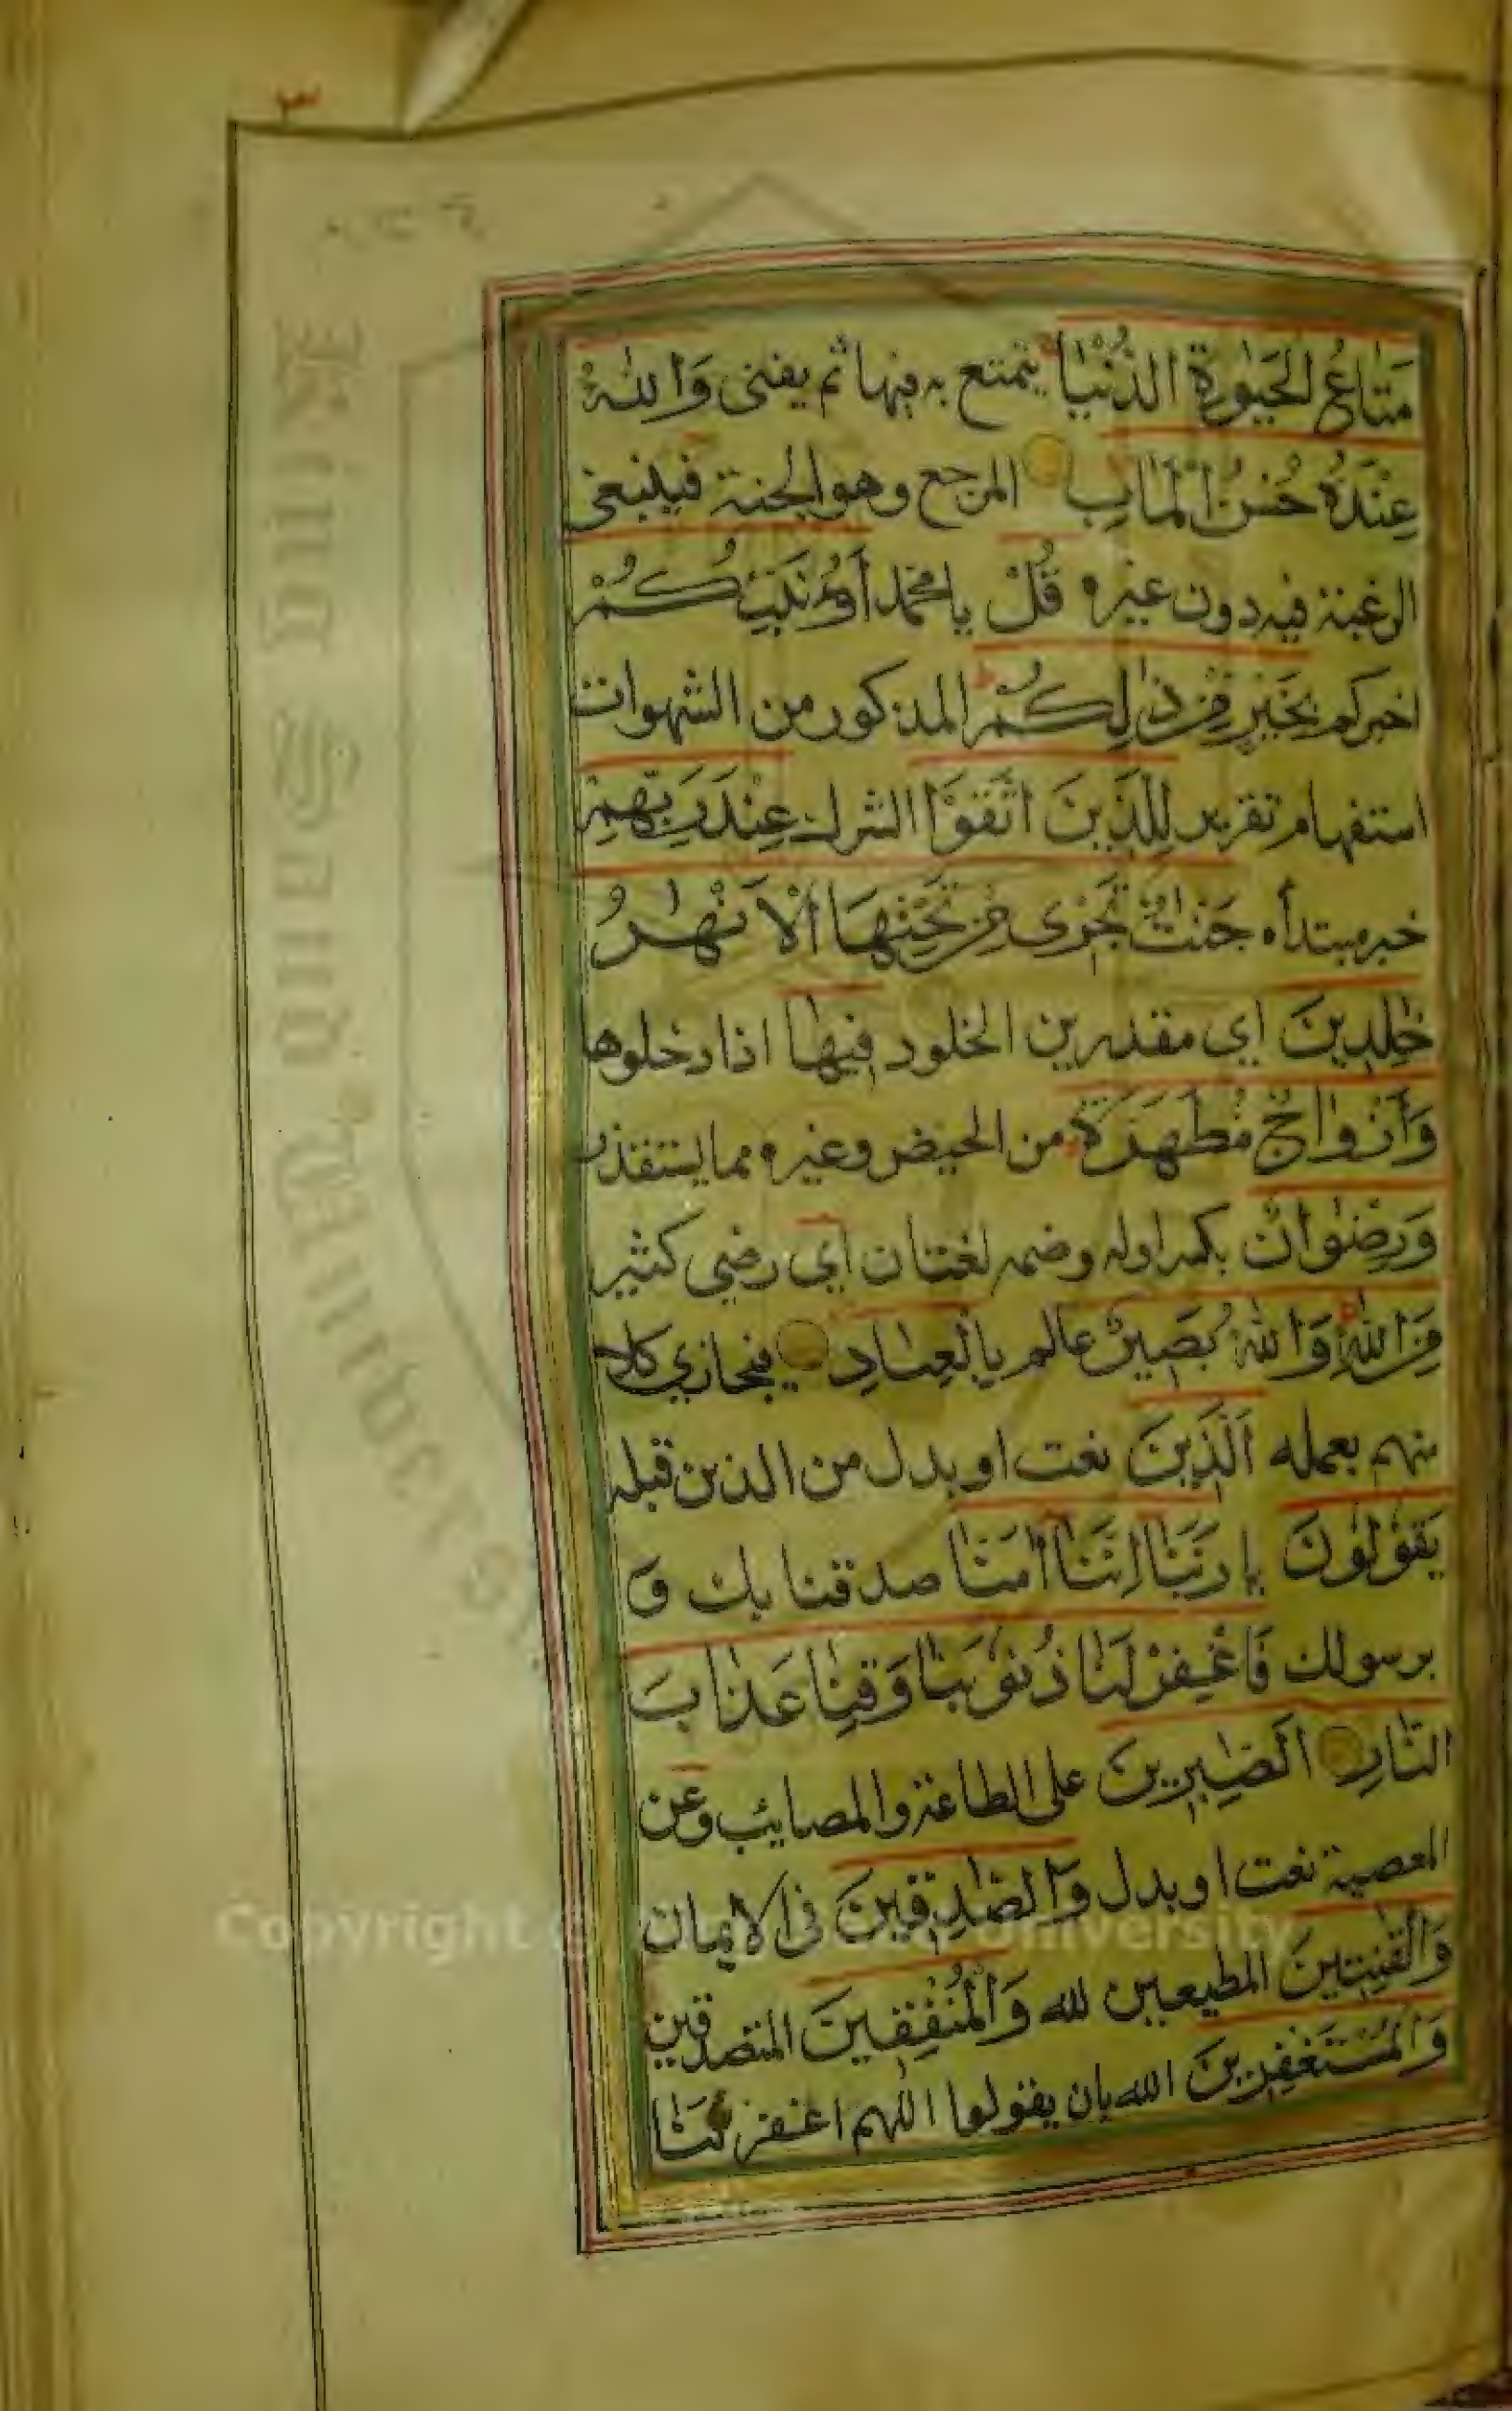 ٣
مَتَاعُ الْحَيٰوةِ الدُّنْيَا يتمتع به فيها ثم يفنى وَاللهُ
عِنْدَهُ حُسْنُ الْمَاٰبِ المرجع وهو الجنة فينبغي
الرغبة فيه دون غيره قُلْ يا محمد أَؤُنَبِّئُكُمْ
اخبركم بِخَيْرٍ مِنْ ذٰلِكُمْ المذكور من الشهوات
استفهام تقرير لِلَّذِينَ اتَّقَوْا الشرك عِنْدَ رَبِّهِمْ
خبر مبتدأه جَنّٰتٌ تَجْرِى مِنْ تَحْتِهَا الْاَنْهٰرُ
خٰلِدِينَ اي مقدرين الخلود فِيهَا اذا دخلوها
وَأَزْوَاجٌ مُطَهَّرَةٌ من الحيض وغيره مما يستقذر
وَرِضْوَانٌ بكسر اوله وضمه لغتان اي رضي كثير
مِنَ اللهِ وَاللهُ بَصِيرٌ عالم بِالْعِبَادِ فيجازي كلا
منهم بعمله اَلَّذِينَ نعت او بدل من الذين قبله
يَقُولُونَ يا رَبَّنَا اِنَّنَا اٰمَنَّا صدقنا بك و
برسولك فَاغْفِرْ لَنَا ذُنُوبَنَا وَقِنَا عَذَابَ
النَّارِ اَلصّٰبِرِينَ على الطاعة والمصايب وعن
المعصية نعت او بدل وَالصّٰدِقِينَ في الايمان
وَالْقٰنِتِينَ المطيعين لله وَالْمُنْفِقِينَ المتصدقين
وَالْمُسْتَغْفِرِينَ الله بان يقولوا اللهم اغفر لَنَا
King Saud University
Copyright © King Saud University